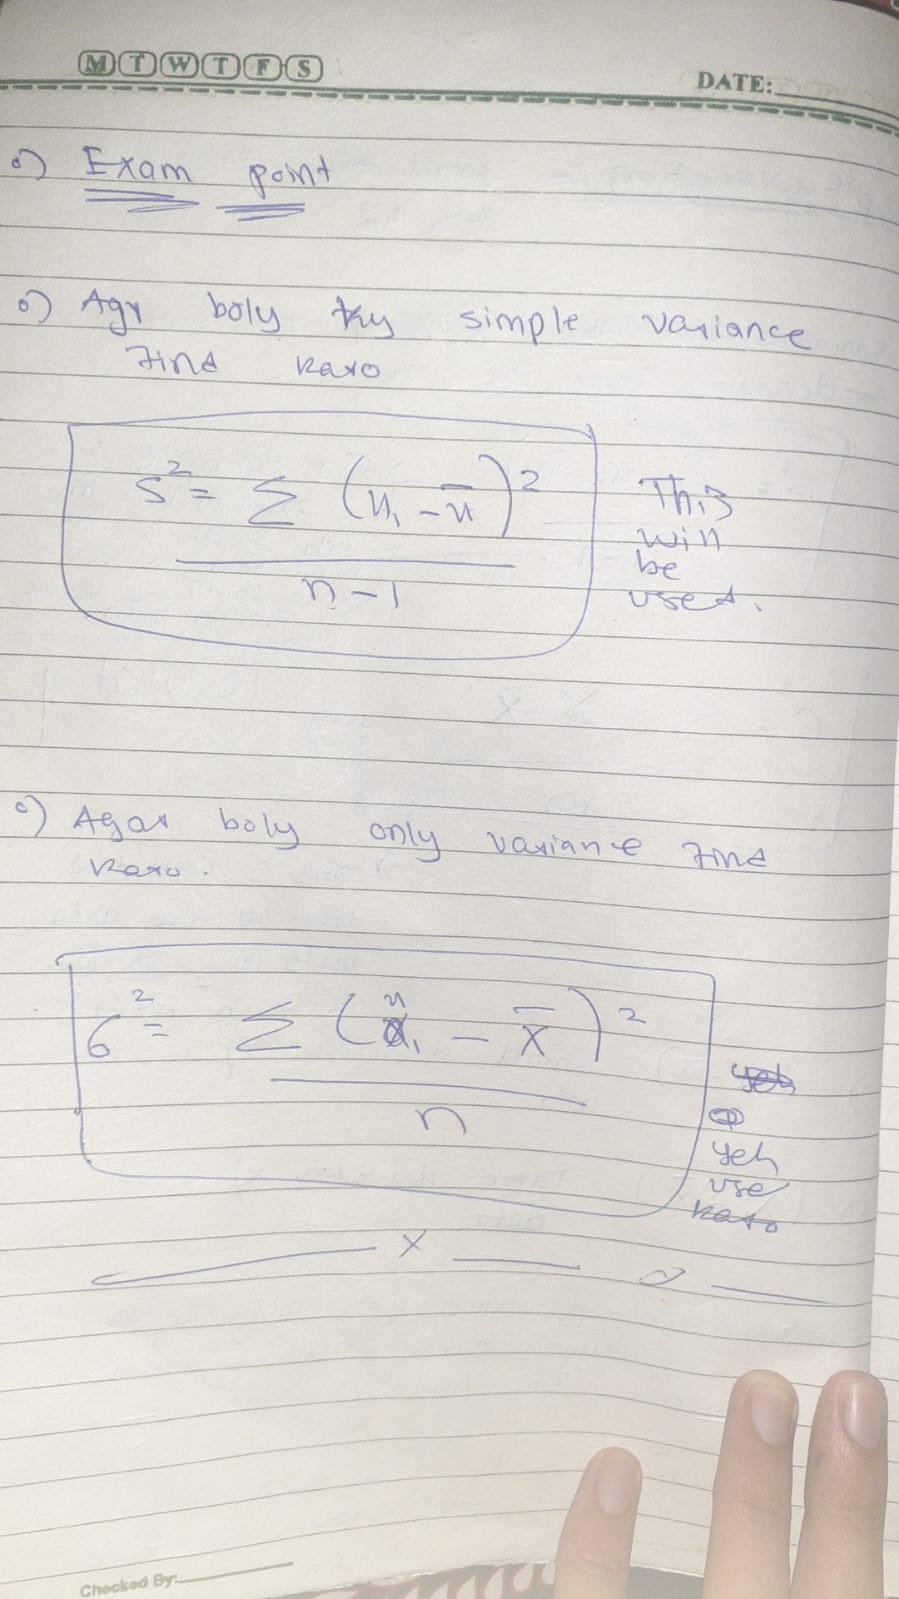 M T W T F S
DATE:
Exam point
Agr boly ky simple variance
find karo
s² = Σ (x₁ - x̄)²
n-1
This
will
be
used.
Agar boly only variance find
karo.
σ² = Σ (x₁ - x̄)²
n
yeh
use
karo
x
Checked By: